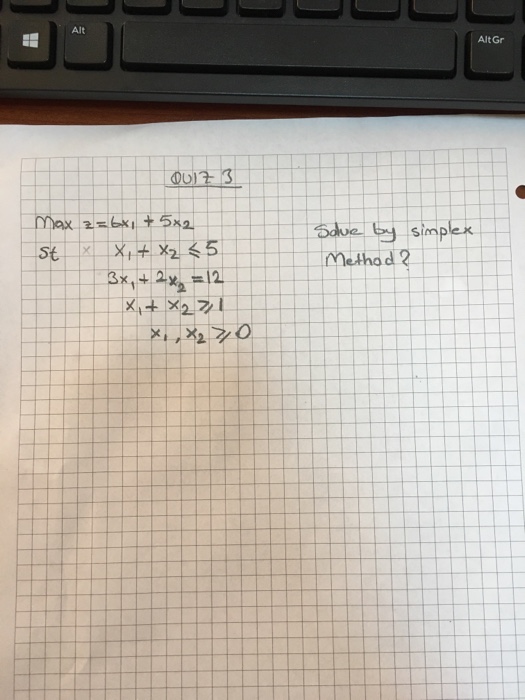 Alt
Alt Gr
QUIZ 3
Max z=6x₁ + 5x₂
St x₁ + x₂ ≤ 5
3x₁ + 2x₂ = 12
x₁ + x₂ ≥ 1
x₁, x₂ ≥ 0
Solve by simplex
Method?